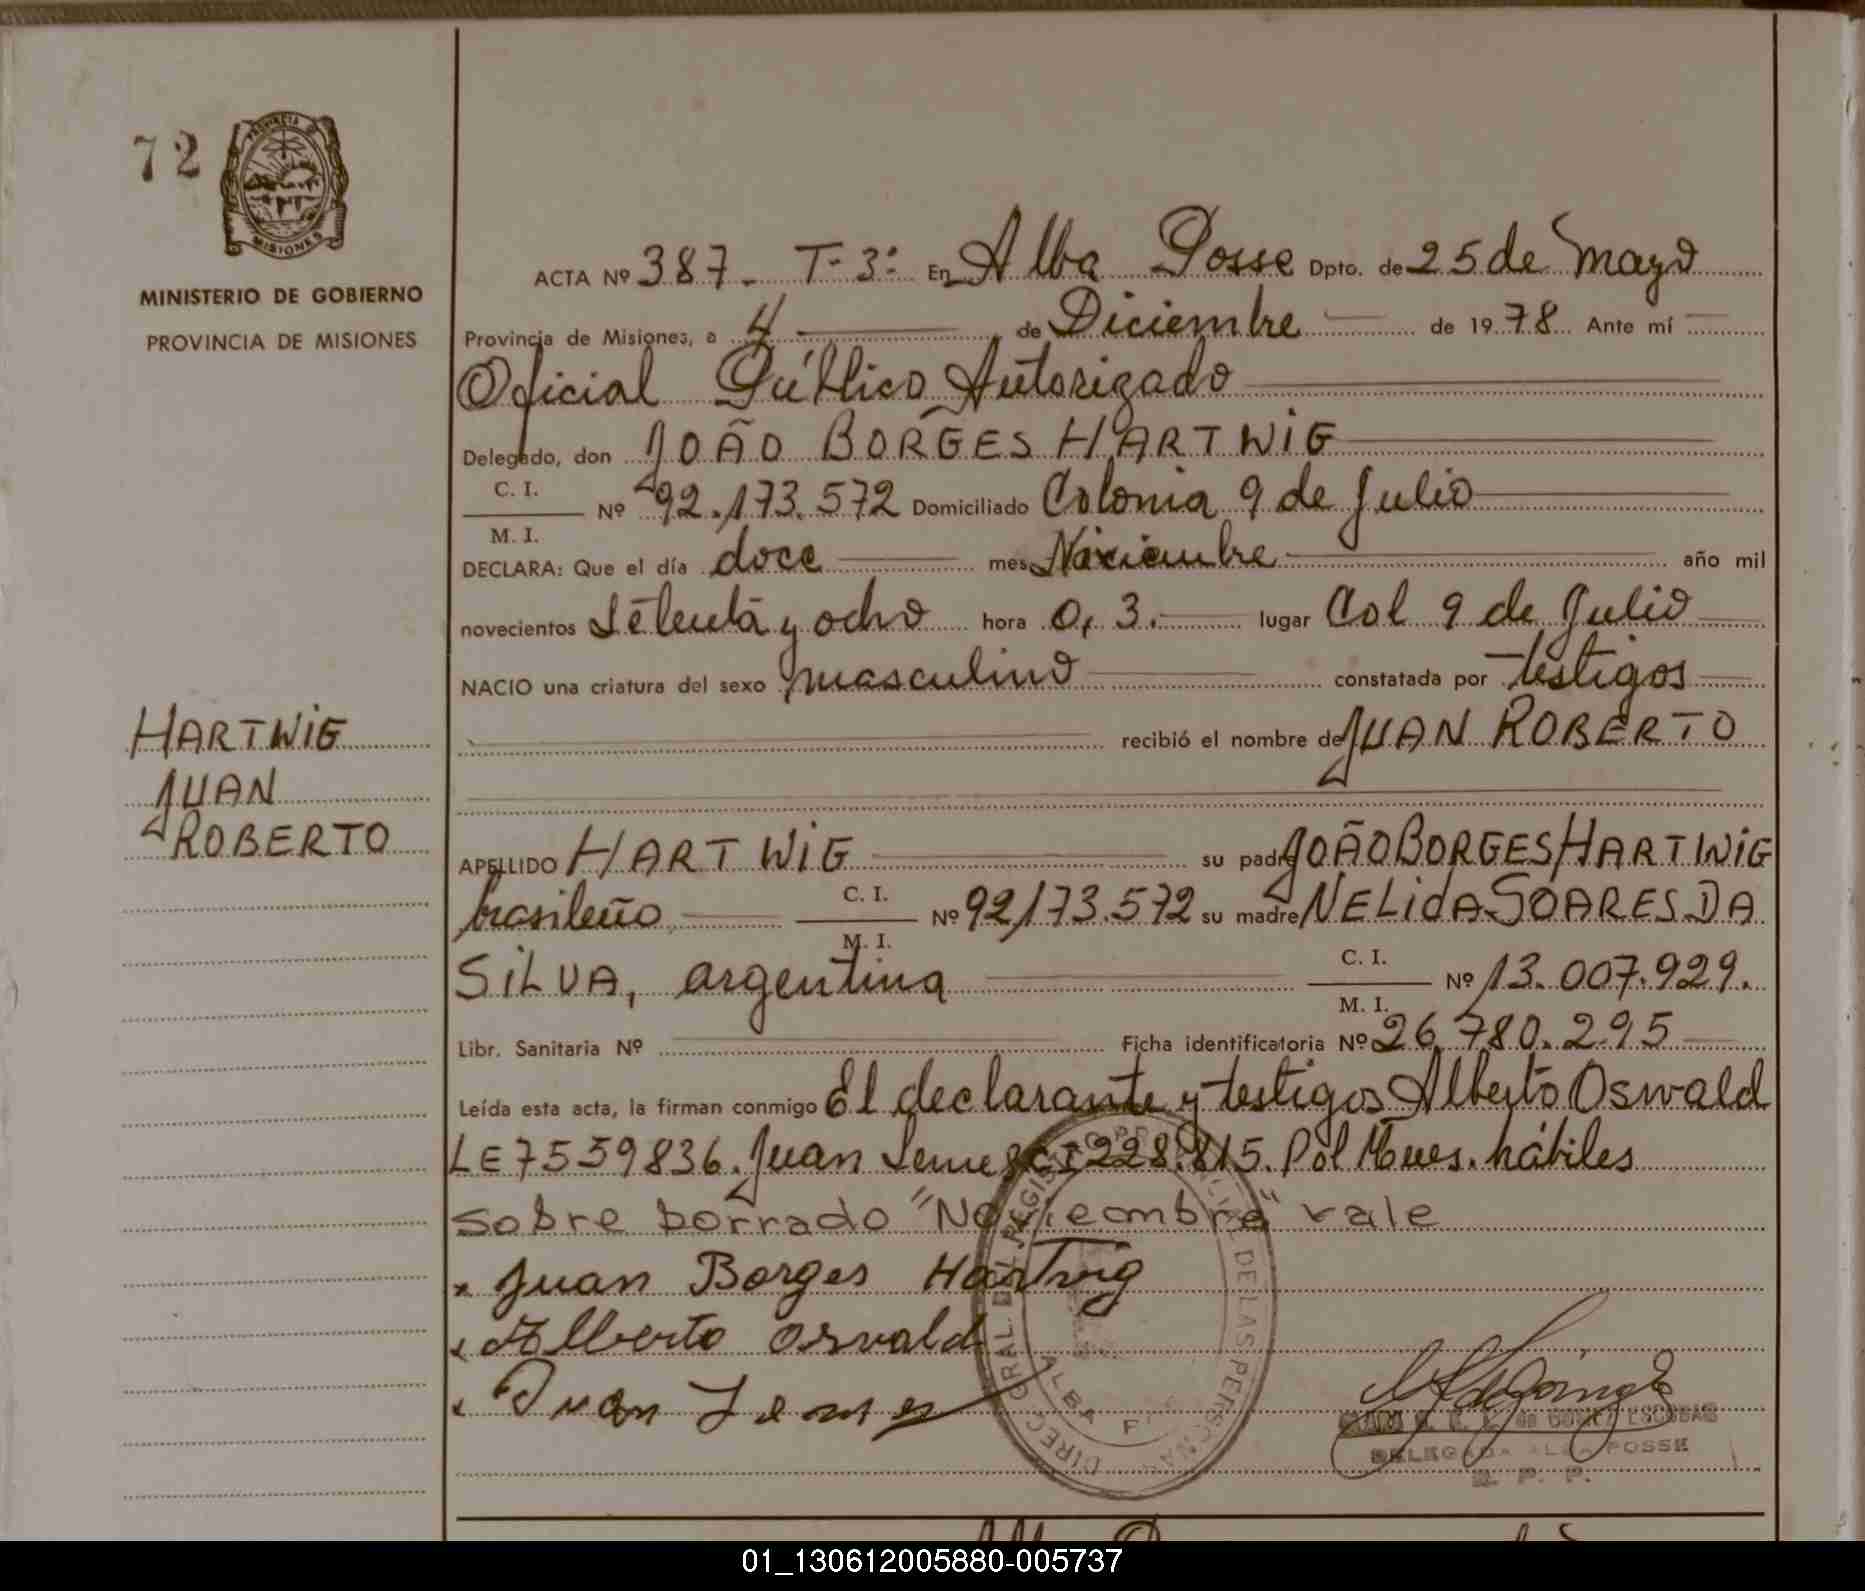 72
PROVINCIA DE
MISIONES
MINISTERIO DE GOBIERNO
PROVINCIA DE MISIONES
HARTWIG
JUAN
ROBERTO
ACTA Nº 387. T-3: En Alba Posse Dpto. de 25 de Mayo
Provincia de Misiones, a 4 de Diciembre de 1978 Ante mí
Oficial Público Autorizado
Delegado, don JOÃO BORGES HARTWIG
C. I.
Nº 92.173.572 Domiciliado Colonia 9 de Julio
M. I.
DECLARA: Que el día doce mes Noviembre año mil
novecientos setenta y ocho hora 0,3. lugar Col 9 de Julio
NACIO una criatura del sexo masculino constatada por testigos
recibió el nombre de JUAN ROBERTO
APELLIDO HARTWIG su padre JOÃO BORGES HARTWIG
brasileño C. I. Nº 92173.572 su madre NELIDA SOARES DA
M. I.
SILVA, argentina C. I. Nº 13.007.929.
M. I.
Libr. Sanitaria Nº Ficha identificatoria Nº 26.780.295
Leída esta acta, la firman conmigo El declarante y testigos Alberto Oswald
LE 7559836. Juan Lemes CI 228.815. Pol Mnes. hábiles
Sobre borrado "Noviembre" vale
x Juan Borges Hartwig
x Alberto Osvald
x Juan Lemes
DIRECC. GRAL. DEL REGISTRO PROVINCIAL DE LAS PERSONAS
ALBA
DE GOMEZ ESCOBAR
DELEGADA ALBA POSSE
R. P. P.
01_130612005880-005737